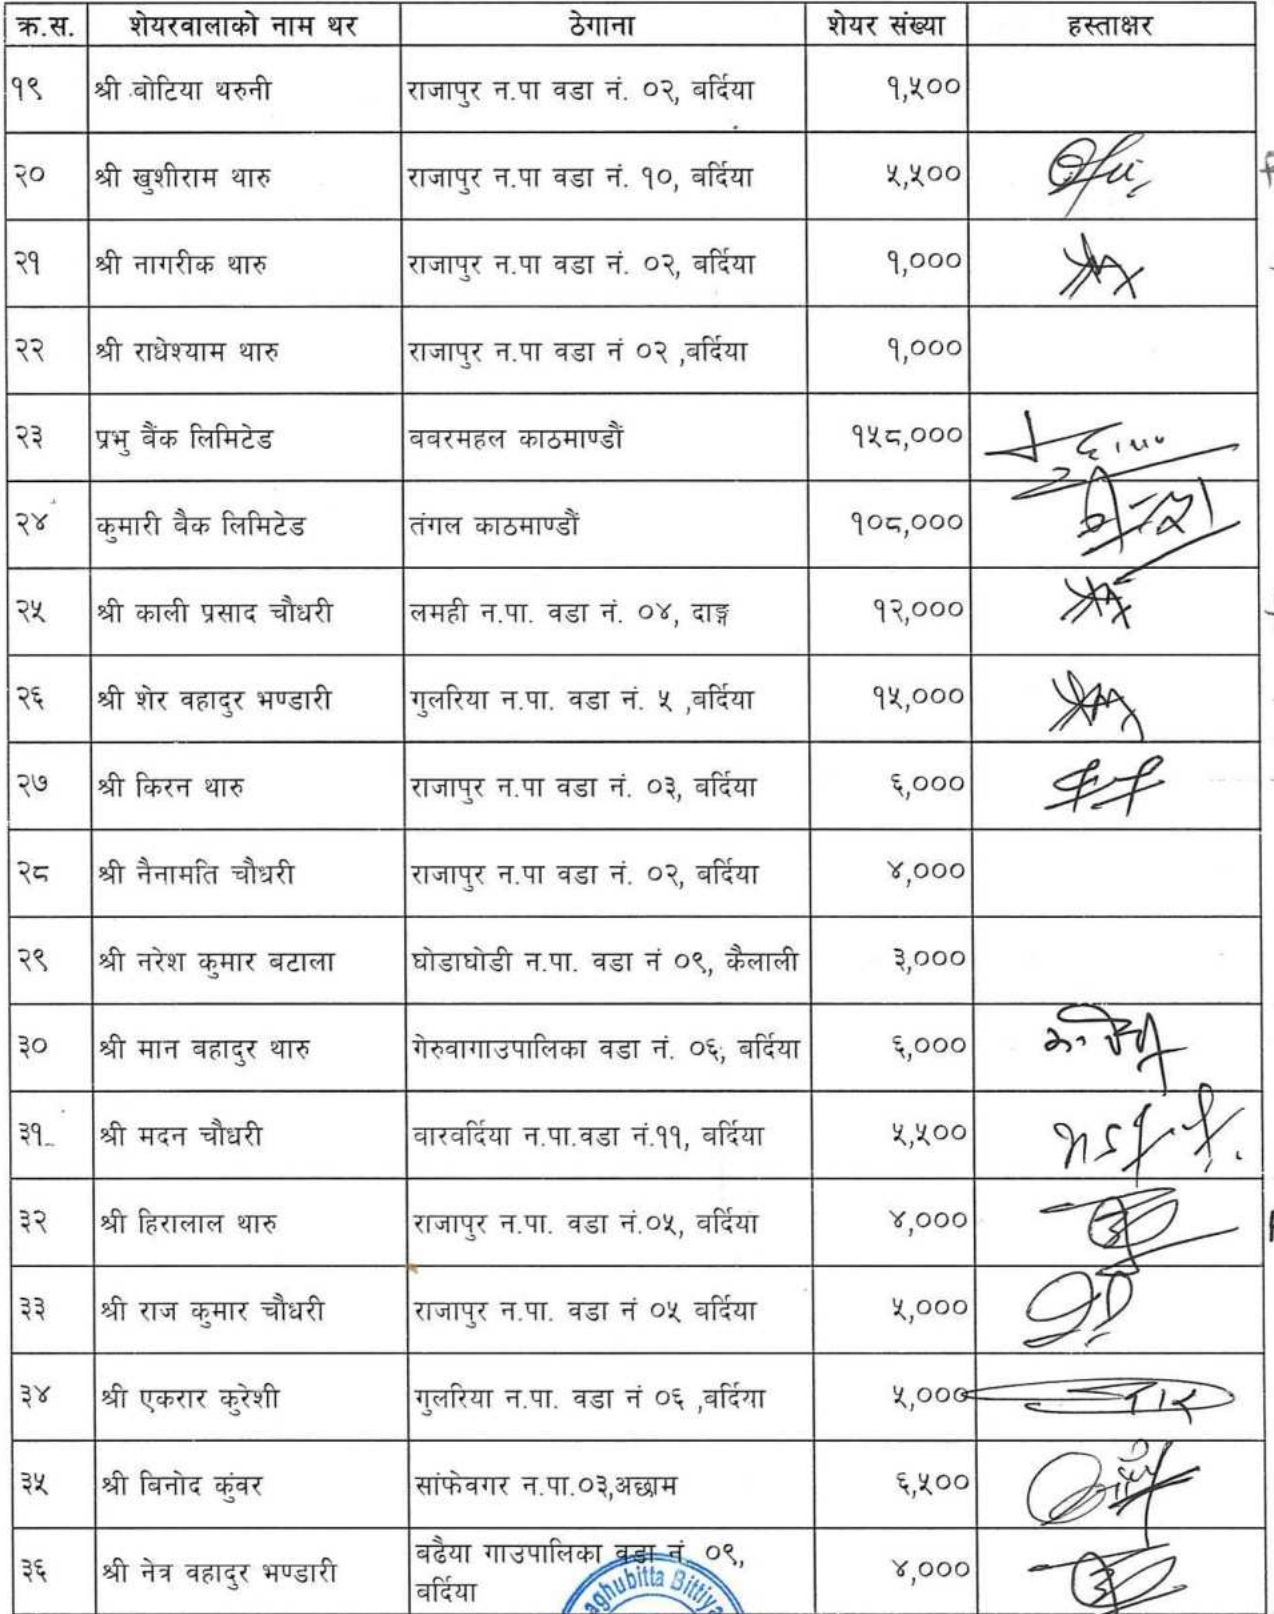 क्र.स. शेयरवालाको नाम थर ठेगाना शेयर संख्या हस्ताक्षर
१९ श्री बोटिया थरुनी राजापुर न.पा वडा नं. ०२, बर्दिया १,५००
२० श्री खुशीराम थारु राजापुर न.पा वडा नं. १०, बर्दिया ५,५००
२१ श्री नागरीक थारु राजापुर न.पा वडा नं. ०२, बर्दिया १,०००
२२ श्री राधेश्याम थारु राजापुर न.पा वडा नं ०२ ,बर्दिया १,०००
२३ प्रभु बैंक लिमिटेड ववरमहल काठमाण्डौं १५८,०००
२४ कुमारी बैक लिमिटेड तंगल काठमाण्डौं १०८,०००
२५ श्री काली प्रसाद चौधरी लमही न.पा. वडा नं. ०४, दाङ्ग १२,०००
२६ श्री शेर वहादुर भण्डारी गुलरिया न.पा. वडा नं. ५ ,बर्दिया १५,०००
२७ श्री किरन थारु राजापुर न.पा वडा नं. ०३, बर्दिया ६,०००
२८ श्री नैनामति चौधरी राजापुर न.पा वडा नं. ०२, बर्दिया ४,०००
२९ श्री नरेश कुमार बटाला घोडाघोडी न.पा. वडा नं ०९, कैलाली ३,०००
३० श्री मान वहादुर थारु गेरुवागाउपालिका वडा नं. ०६, बर्दिया ६,०००
३१ श्री मदन चौधरी वारवर्दिया न.पा.वडा नं.११, बर्दिया ५,५००
३२ श्री हिरालाल थारु राजापुर न.पा. वडा नं.०५, वर्दिया ४,०००
३३ श्री राज कुमार चौधरी राजापुर न.पा. वडा नं ०५ बर्दिया ५,०००
३४ श्री एकरार कुरेशी गुलरिया न.पा. वडा नं ०६ ,बर्दिया ५,०००
३५ श्री बिनोद कुंवर सांफेवगर न.पा.०३,अछाम ६,५००
३६ श्री नेत्र वहादुर भण्डारी बढैया गाउपालिका वडा नं ०९, ४,०००
वर्दिया